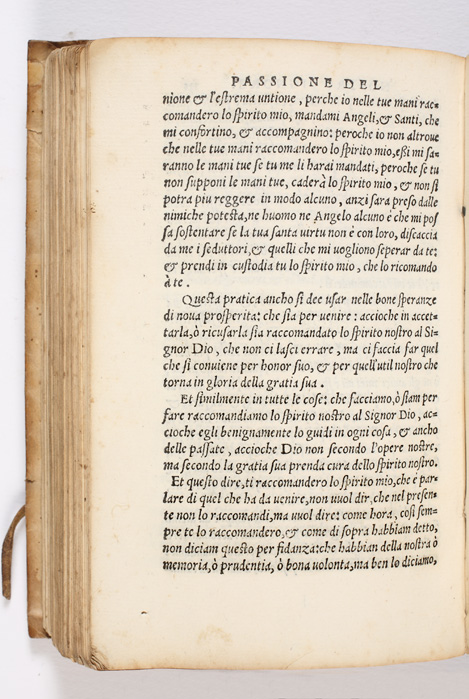 PASSIONE DEL
nione & l'estrema untione, perche io nelle tue mani rac=
comandero lo spirito mio, mandami Angeli, & Santi, che
mi confortino, & accompagnino: peroche io non altroue
che nelle tue mani raccomandero lo spirito mio, eßi mi sa=
ranno le mani tue se tu me li harai mandati, peroche se tu
non supponi le mani tue, caderà lo spirito mio, & non si
potra piu reggere in modo alcuno, anzi sara preso dalle
nimiche potesta, ne huomo ne Angelo alcuno è che mi pos
sa sostentare se la tua santa uirtu non è con loro, discaccia
da me i seduttori, & quelli che mi uogliono seperar da te:
& prendi in custodia tu lo spirito mio, che lo ricomando
à te.
Questa pratica ancho si dee usar nelle bone speranze
di noua prosperita: che sia per uenire: accioche in accet=
tarla, ò ricusarla sia raccomandato lo spirito nostro al Si=
gnor Dio, che non ci lasci errare, ma ci faccia far quel
che si conuiene per honor suo, & per quell'util nostro che
torna in gloria della gratia sua.
Et similmente in tutte le cose: che facciamo, ò siam per
fare raccomandiamo lo spirito nostro al Signor Dio, ac=
cioche egli benignamente lo guidi in ogni cosa, & ancho
delle passate, accioche Dio non secondo l'opere nostre,
ma secondo la gratia sua prenda cura dello spirito nostro.
Et questo dire, ti raccomandero lo spirito mio, che è par=
lare di quel che ha da uenire, non uuol dir, che nel presen=
te non lo raccomandi, ma uuol dire: come hora, così sem=
pre te lo raccomandero, & come di sopra habbiam detto,
non diciam questo per fidanza: che habbian della nostra ò
memoria, ò prudentia, ò bona uolonta, ma ben lo diciamo,